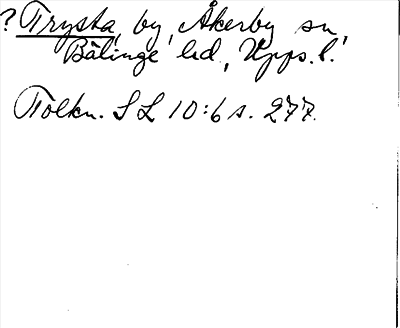 ? Trysta, by, Åkerby sn,
Bälinge hd, Upps. l.
Tolkn. SL 10:6 s. 277.